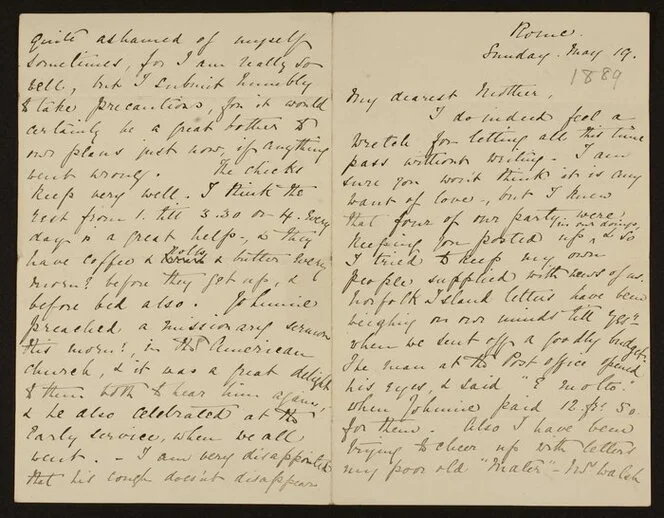 Rome.
Sunday. May 19.
1889
My dearest Mother,
I do indeed feel a
wretch for letting all this time
pass without writing - I am
sure you won't think it is any
want of love -, but I knew
that four of our party were
keeping you posted up in our doings, & so
I tried to keep my own
people supplied with news of us.
Norfolk Island letters have been
weighing on our minds till yesy
when we sent off a goodly budget.
The man at the Post office opened
his eyes, & said "E molto."
when Johnnie paid 12. fr. 50.
for them. Also I have been
trying to cheer up with letters
my poor old "Mater" - Mrs Walsh
quite ashamed of myself
sometimes, for I am really so
well, but I submit humbly
to take precautions, for it would
certainly be a great bother to
our plans just now, if anything
went wrong. The chicks
keep very well. I think the
rest from 1. till 3.30 or 4. every
day is a great help -, & they
have coffee & rolls & butter every
morng before they get up, &
before bed also. Johnnie
preached a missionary sermon
this morng, in the American
church, & it was a great delight
to them both to hear him again,
& he also celebrated at the
Early service, when we all
went. - I am very disappointed
that his cough doesn't disappear